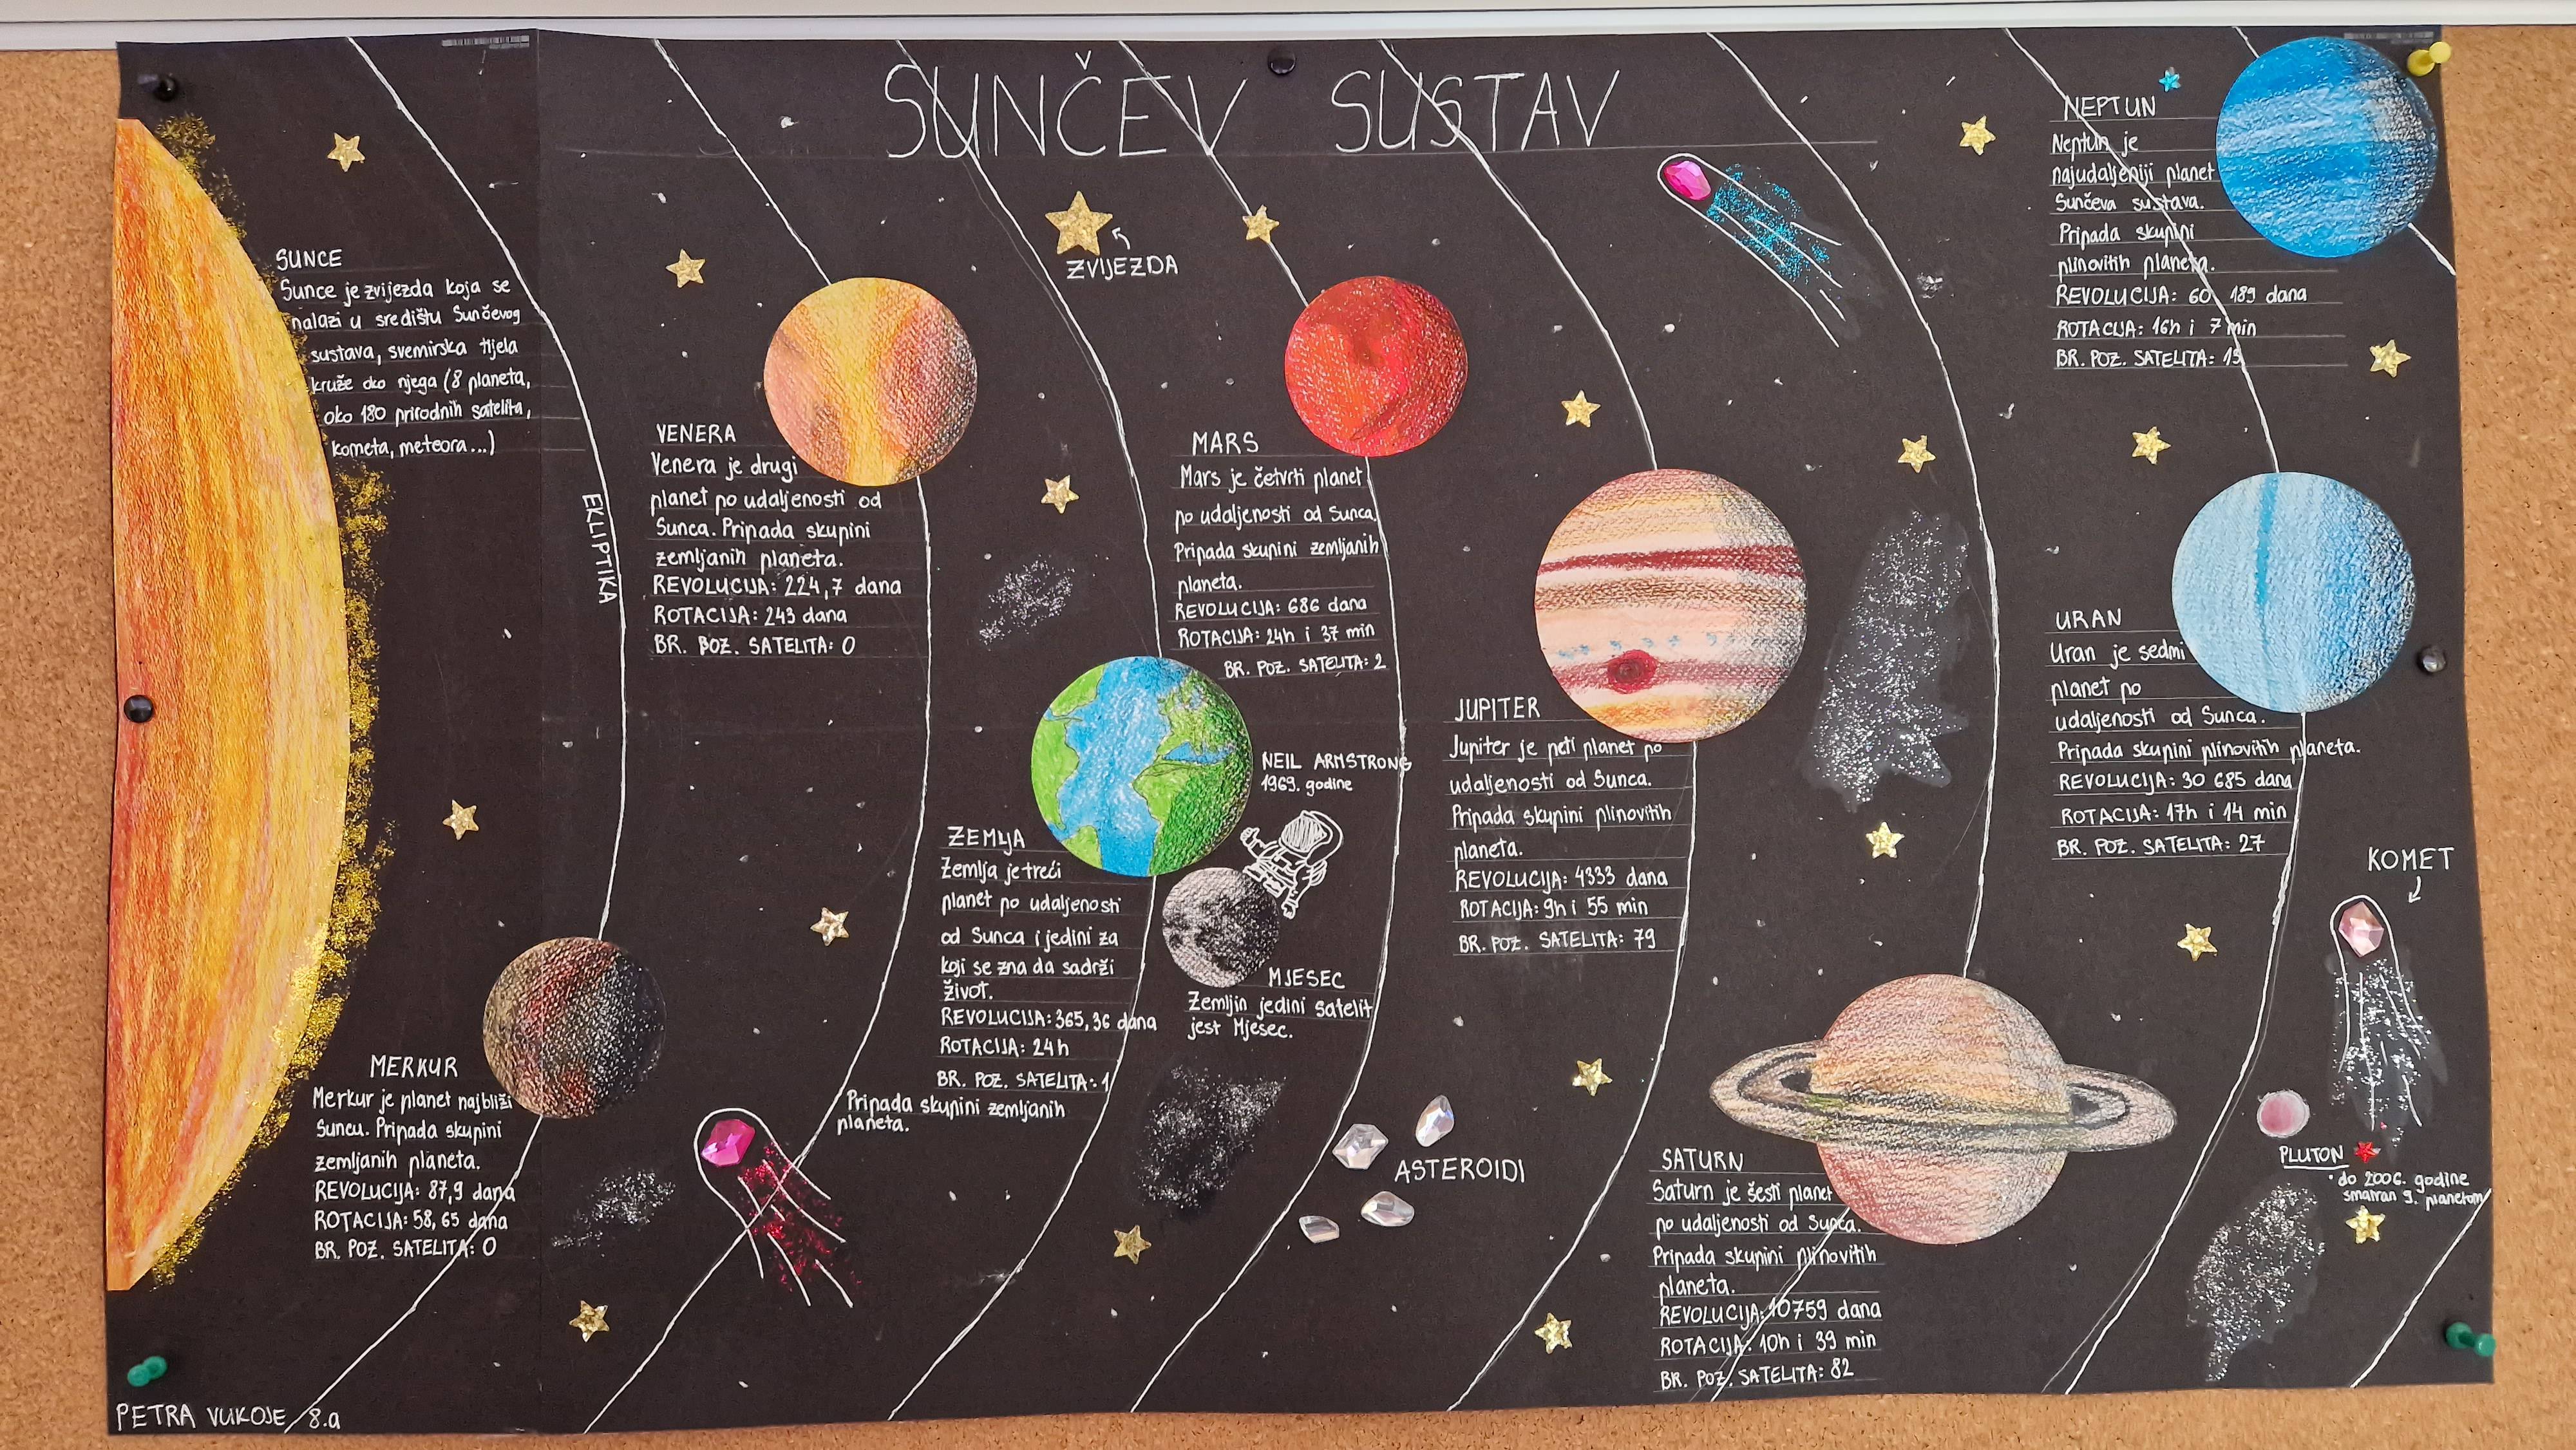 SUNČEV SUSTAV
SUNCE
Sunce je zvijezda koja se
nalazi u središtu Sunčevog
sustava, svemirska tijela
kruže oko njega (8 planeta,
oko 180 prirodnih satelita,
kometa, meteora...)
EKLIPTIKA
MERKUR
Merkur je planet najbliži
Suncu. Pripada skupini
zemljanih planeta.
REVOLUCIJA: 87,9 dana
ROTACIJA: 58,65 dana
BR. POZ. SATELITA: 0
VENERA
Venera je drugi
planet po udaljenosti od
Sunca. Pripada skupini
zemljanih planeta.
REVOLUCIJA: 224,7 dana
ROTACIJA: 243 dana
BR. POZ. SATELITA: 0
ZVIJEZDA
ZEMLJA
Zemlja je treći
planet po udaljenosti
od Sunca i jedini za
koji se zna da sadrži
život.
REVOLUCIJA: 365,36 dana
ROTACIJA: 24h
BR. POZ. SATELITA: 1
Pripada skupini zemljanih
planeta.
NEIL ARMSTRONG
1969. godine
MJESEC
Zemljin jedini satelit
jest Mjesec.
MARS
Mars je četvrti planet
po udaljenosti od Sunca.
Pripada skupini zemljanih
planeta.
REVOLUCIJA: 686 dana
ROTACIJA: 24h i 37 min
BR. POZ. SATELITA: 2
ASTEROIDI
JUPITER
Jupiter je peti planet po
udaljenosti od Sunca.
Pripada skupini plinovitih
planeta.
REVOLUCIJA: 4333 dana
ROTACIJA: 9h i 55 min
BR. POZ. SATELITA: 79
SATURN
Saturn je šesti planet
po udaljenosti od Sunca.
Pripada skupini plinovitih
planeta.
REVOLUCIJA: 10759 dana
ROTACIJA: 10h i 39 min
BR. POZ. SATELITA: 82
URAN
Uran je sedmi
planet po
udaljenosti od Sunca.
Pripada skupini plinovitih planeta.
REVOLUCIJA: 30 685 dana
ROTACIJA: 17h i 14 min
BR. POZ. SATELITA: 27
NEPTUN
Neptun je
najudaljeniji planet
Sunčeva sustava.
Pripada skupini
plinovitih planeta.
REVOLUCIJA: 60 189 dana
ROTACIJA: 16h i 7 min
BR. POZ. SATELITA: 13
KOMET
PLUTON
do 2006. godine
smatran 9. planetom
PETRA VUKOJE 8.a